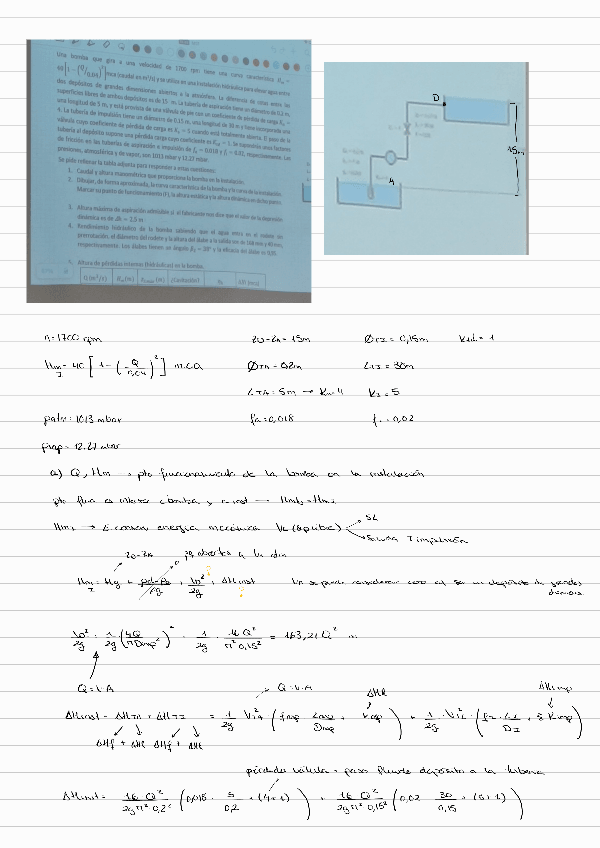 Una bomba que gira a una velocidad de 1700 rpm tiene una curva característica H_m =
40 [1 − (Q/0,04)²] mca (caudal en m³/s) y se utiliza en una instalación hidráulica para elevar agua entre
dos depósitos de grandes dimensiones abiertos a la atmósfera. La diferencia de cotas entre las
superficies libres de ambos depósitos es de 15 m. La tubería de aspiración tiene un diámetro de 0,2 m,
una longitud de 5 m, y está provista de una válvula de pie con un coeficiente de pérdida de carga
4. La tubería de impulsión tiene un diámetro de 0,15 m, una longitud de 30 m y lleva incorporada una
válvula cuyo coeficiente de pérdida de carga es = 5 cuando está totalmente abierta. El paso de la
tubería al depósito supone una pérdida carga de coeficiente = 1. Se suponen unos factores
de fricción en las tuberías de aspiración e impulsión de = 0.018 y = 0.02, respectivamente. Las
presiones, atmosférica y de vapor, son 1013 mbar y 12.27 mbar.
Se pide rellenar la tabla adjunta para responder a estas cuestiones:
1. Caudal y altura manométrica que proporciona la bomba en la instalación.
2. Dibujar, de forma aproximada, la curva característica de la bomba y la curva de la instalación.
Marcar su punto de funcionamiento (F), la altura estática y la altura dinámica en dicho punto.
3. Altura máxima de aspiración admisible si el fabricante nos dice que el valor de la depresión
dinámica es de Δh = 2,5 m
4. Rendimiento hidráulico de la bomba sabiendo que el agua entra en el rodete sin
prerrotación, el diámetro del rodete y la altura del álabe a la salida son de 168 mm y 40 mm,
respectivamente. Los álabes tienen un ángulo = 20° y la eficacia del álabe es 0,95.
5. Altura de pérdidas internas (hidráulicas) en la bomba.
Q (m³/s) H_m (m) (m) ¿Cavitación?
D
15m
A
n=1700 rpm z_D-z_A=15m Ø_TI=0,15m K_sd=1
H_m = 40 [1-(Q/0,04)²] m.c.a Ø_TA=0,2m L_TI=30m
L_TA=5m → K_va=4 K_I=5
patm=1013 mbar f_a=0,018 f_I=0,02
pvap=12.27 mbar
a) Q, Hm → pto funcionamiento de la bomba en la instalación
pto func es interse c bomba y c inst → Hmb=Hmi
Hmi → E conserv energía mecánica Vc (tubería) SL
Salida T impulsión
z_D-z_A abiertos a la atm
Hm_I = Hg + (p_D-p_A)/ρg + v_D²/2g + ΔH inst
v_D²/2g = 1/2g (4Q/πD_imp²)² = 1/2g · 16Q²/π²0,15⁴ = 163,21 Q² m
Q=v·A
Q=v·A ΔHL ΔHimp
ΔHinst = ΔH_TA + ΔH_TI = 1/2g V_TA² (f_asp L_asp/D_asp + K_asp) + 1/2g V_TI² (f_I·L_I/D_I + Σ K_imp)
ΔHf + ΔHL ΔHf + ΔHL
pérdidas válvula + paso fluido depósito a la tubería
ΔHinst = 16 Q²/2gπ²0,2⁴ (0,018 · 5/0,2 + (4+1)) + 16 Q²/2gπ²0,15⁴ (0,02 30/0,15 + (5+1))